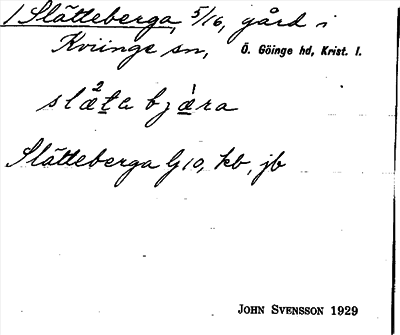 1 Slätteberga, 5/16, gård i
Kviinge sn, Ö. Göinge hd, Krist. l.
Slätteberga Gj 10, kb, jb
JOHN SVENSSON 1929